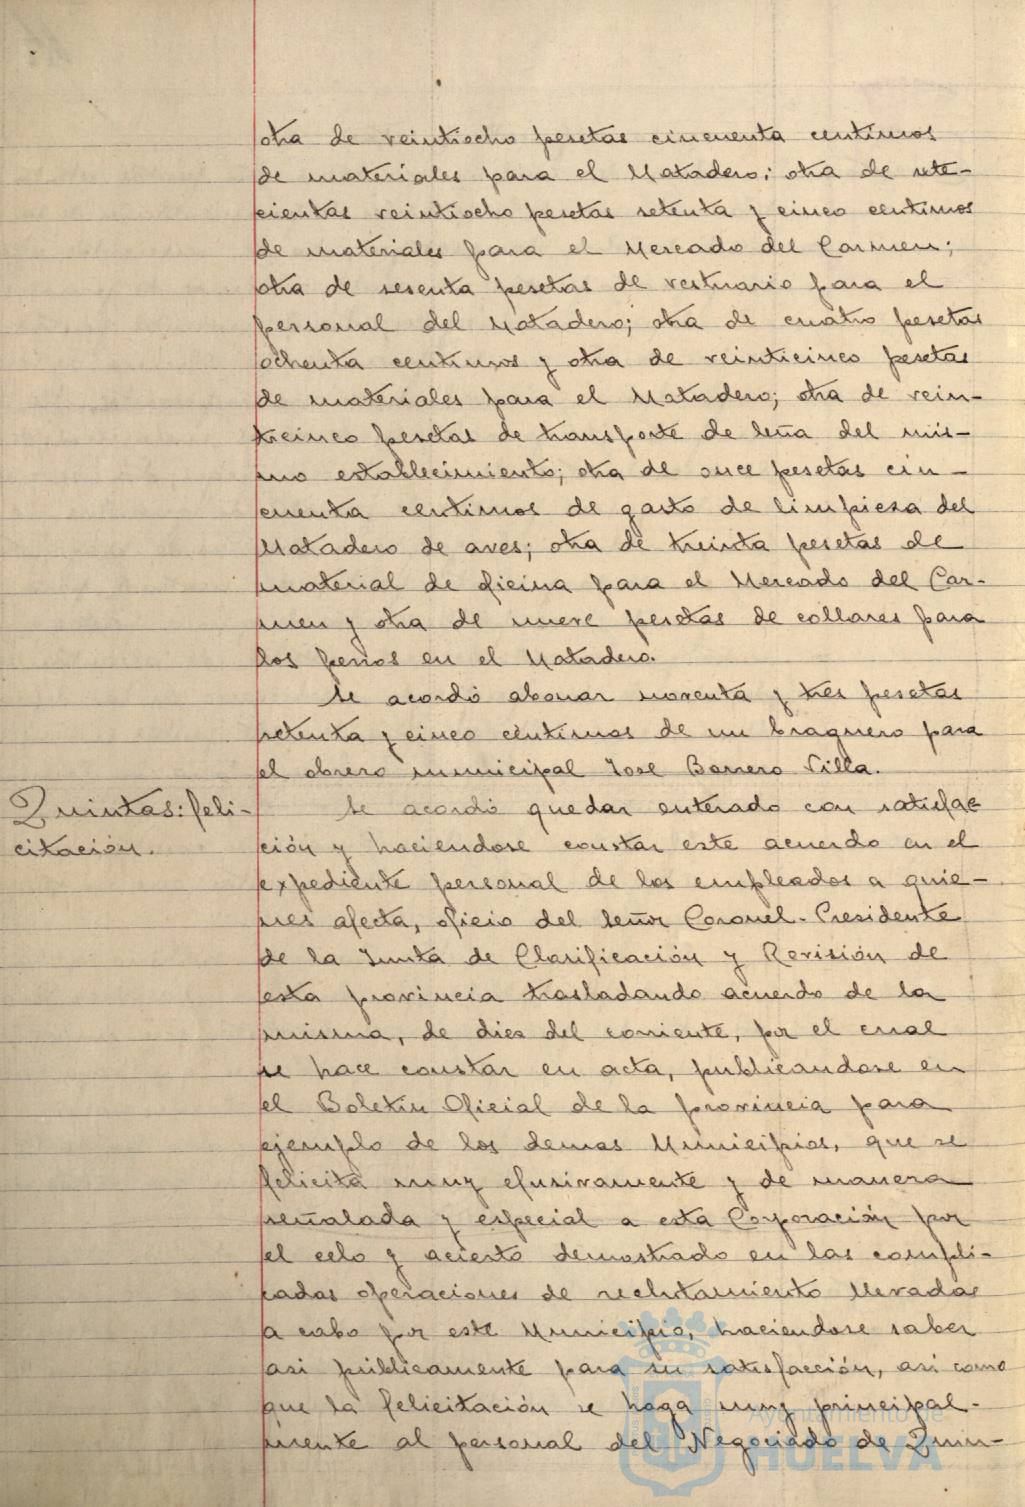 otra de veintiocho pesetas cincuenta centimos
de materiales para el Matadero; otra de sete-
cientas veintiocho pesetas setenta y cinco centimos
de materiales para el Mercado del Carmen;
otra de sesenta pesetas de vestuario para el
personal del Matadero; otra de cuatro pesetas
ochenta centimos y otra de veinticinco pesetas
de materiales para el Matadero; otra de vein-
ticinco pesetas de transporte de leña del mis-
mo establecimiento; otra de once pesetas cin-
cuenta centimos de gasto de limpieza del
Matadero de aves; otra de treinta pesetas de
material de oficina para el Mercado del Car-
men y otra de nueve pesetas de collares para
los perros en el Matadero.
Se acordó abonar noventa y tres pesetas
setenta y cinco céntimos de un braguero para
el obrero municipal José Barrero Villa.
Quintas: feli-
citación.
Se acordó quedar enterado con satisfac
ción y haciendose constar este acuerdo en el
expediente personal de los empleados a quie-
nes afecta, oficio del Señor Coronel-Presidente
de la Junta de Clasificación y Revisión de
esta provincia trasladando acuerdo de la
misma, de diez del corriente, por el cual
se hace constar en acta, publicandose en
el Boletín Oficial de la provincia para
ejemplo de los demas Municipios, que se
felicita muy efusivamente y de manera
señalada y especial a esta Corporación por
el celo y acierto demostrado en las compli-
cadas operaciones de reclutamiento llevadas
a cabo por este Municipio, haciendose saber
asi públicamente para su satisfacción, asi como
que la felicitación se haga muy principal-
mente al personal del Negociado de Quin-
Ayuntamiento de
HUELVA